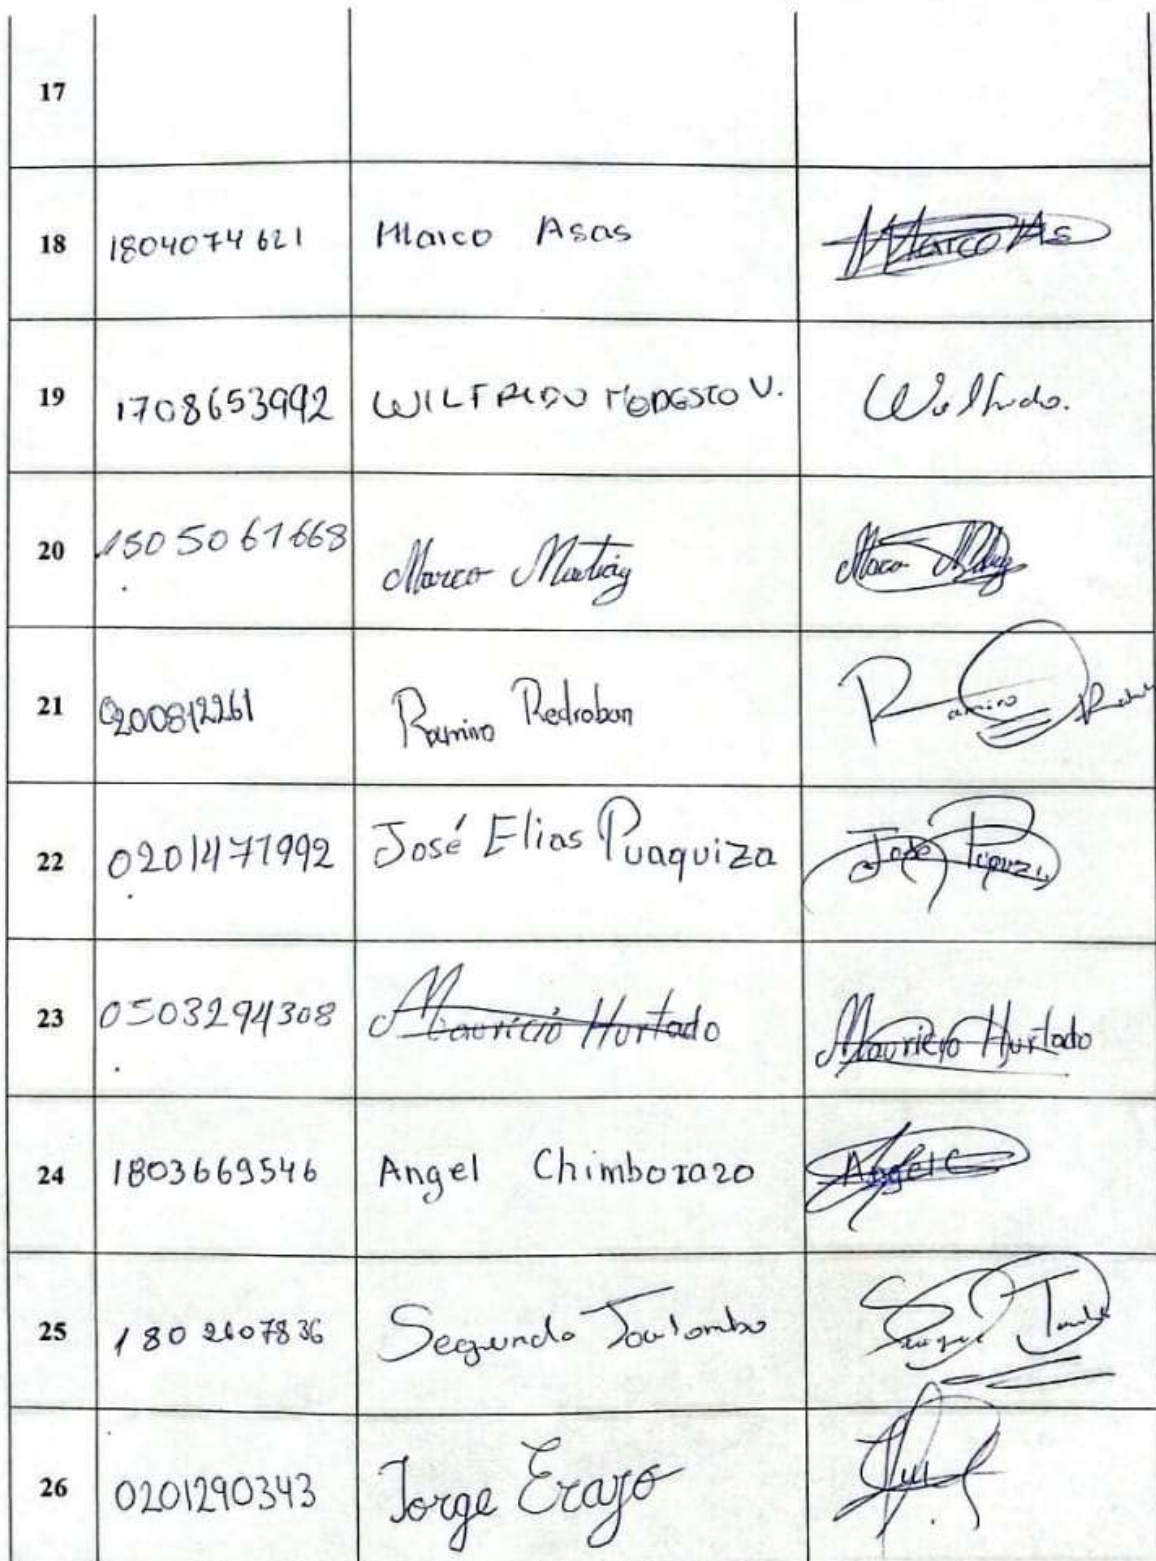 17
18 1804074621 Marco Asas Marco As
19 1708653992 WILFRIDO MODESTO V. Wilfrido.
20 1505061668 Marco
21 0200812261 Ramiro Redroban Ramiro
22 0201471992 José Elias Puaquiza José
23 0503294308 Mauricio Hurtado Mauricio Hurtado
24 1803669546 Angel Chimborazo Angel C
25 1802607836 Segundo
26 0201290343 Jorge Erazo